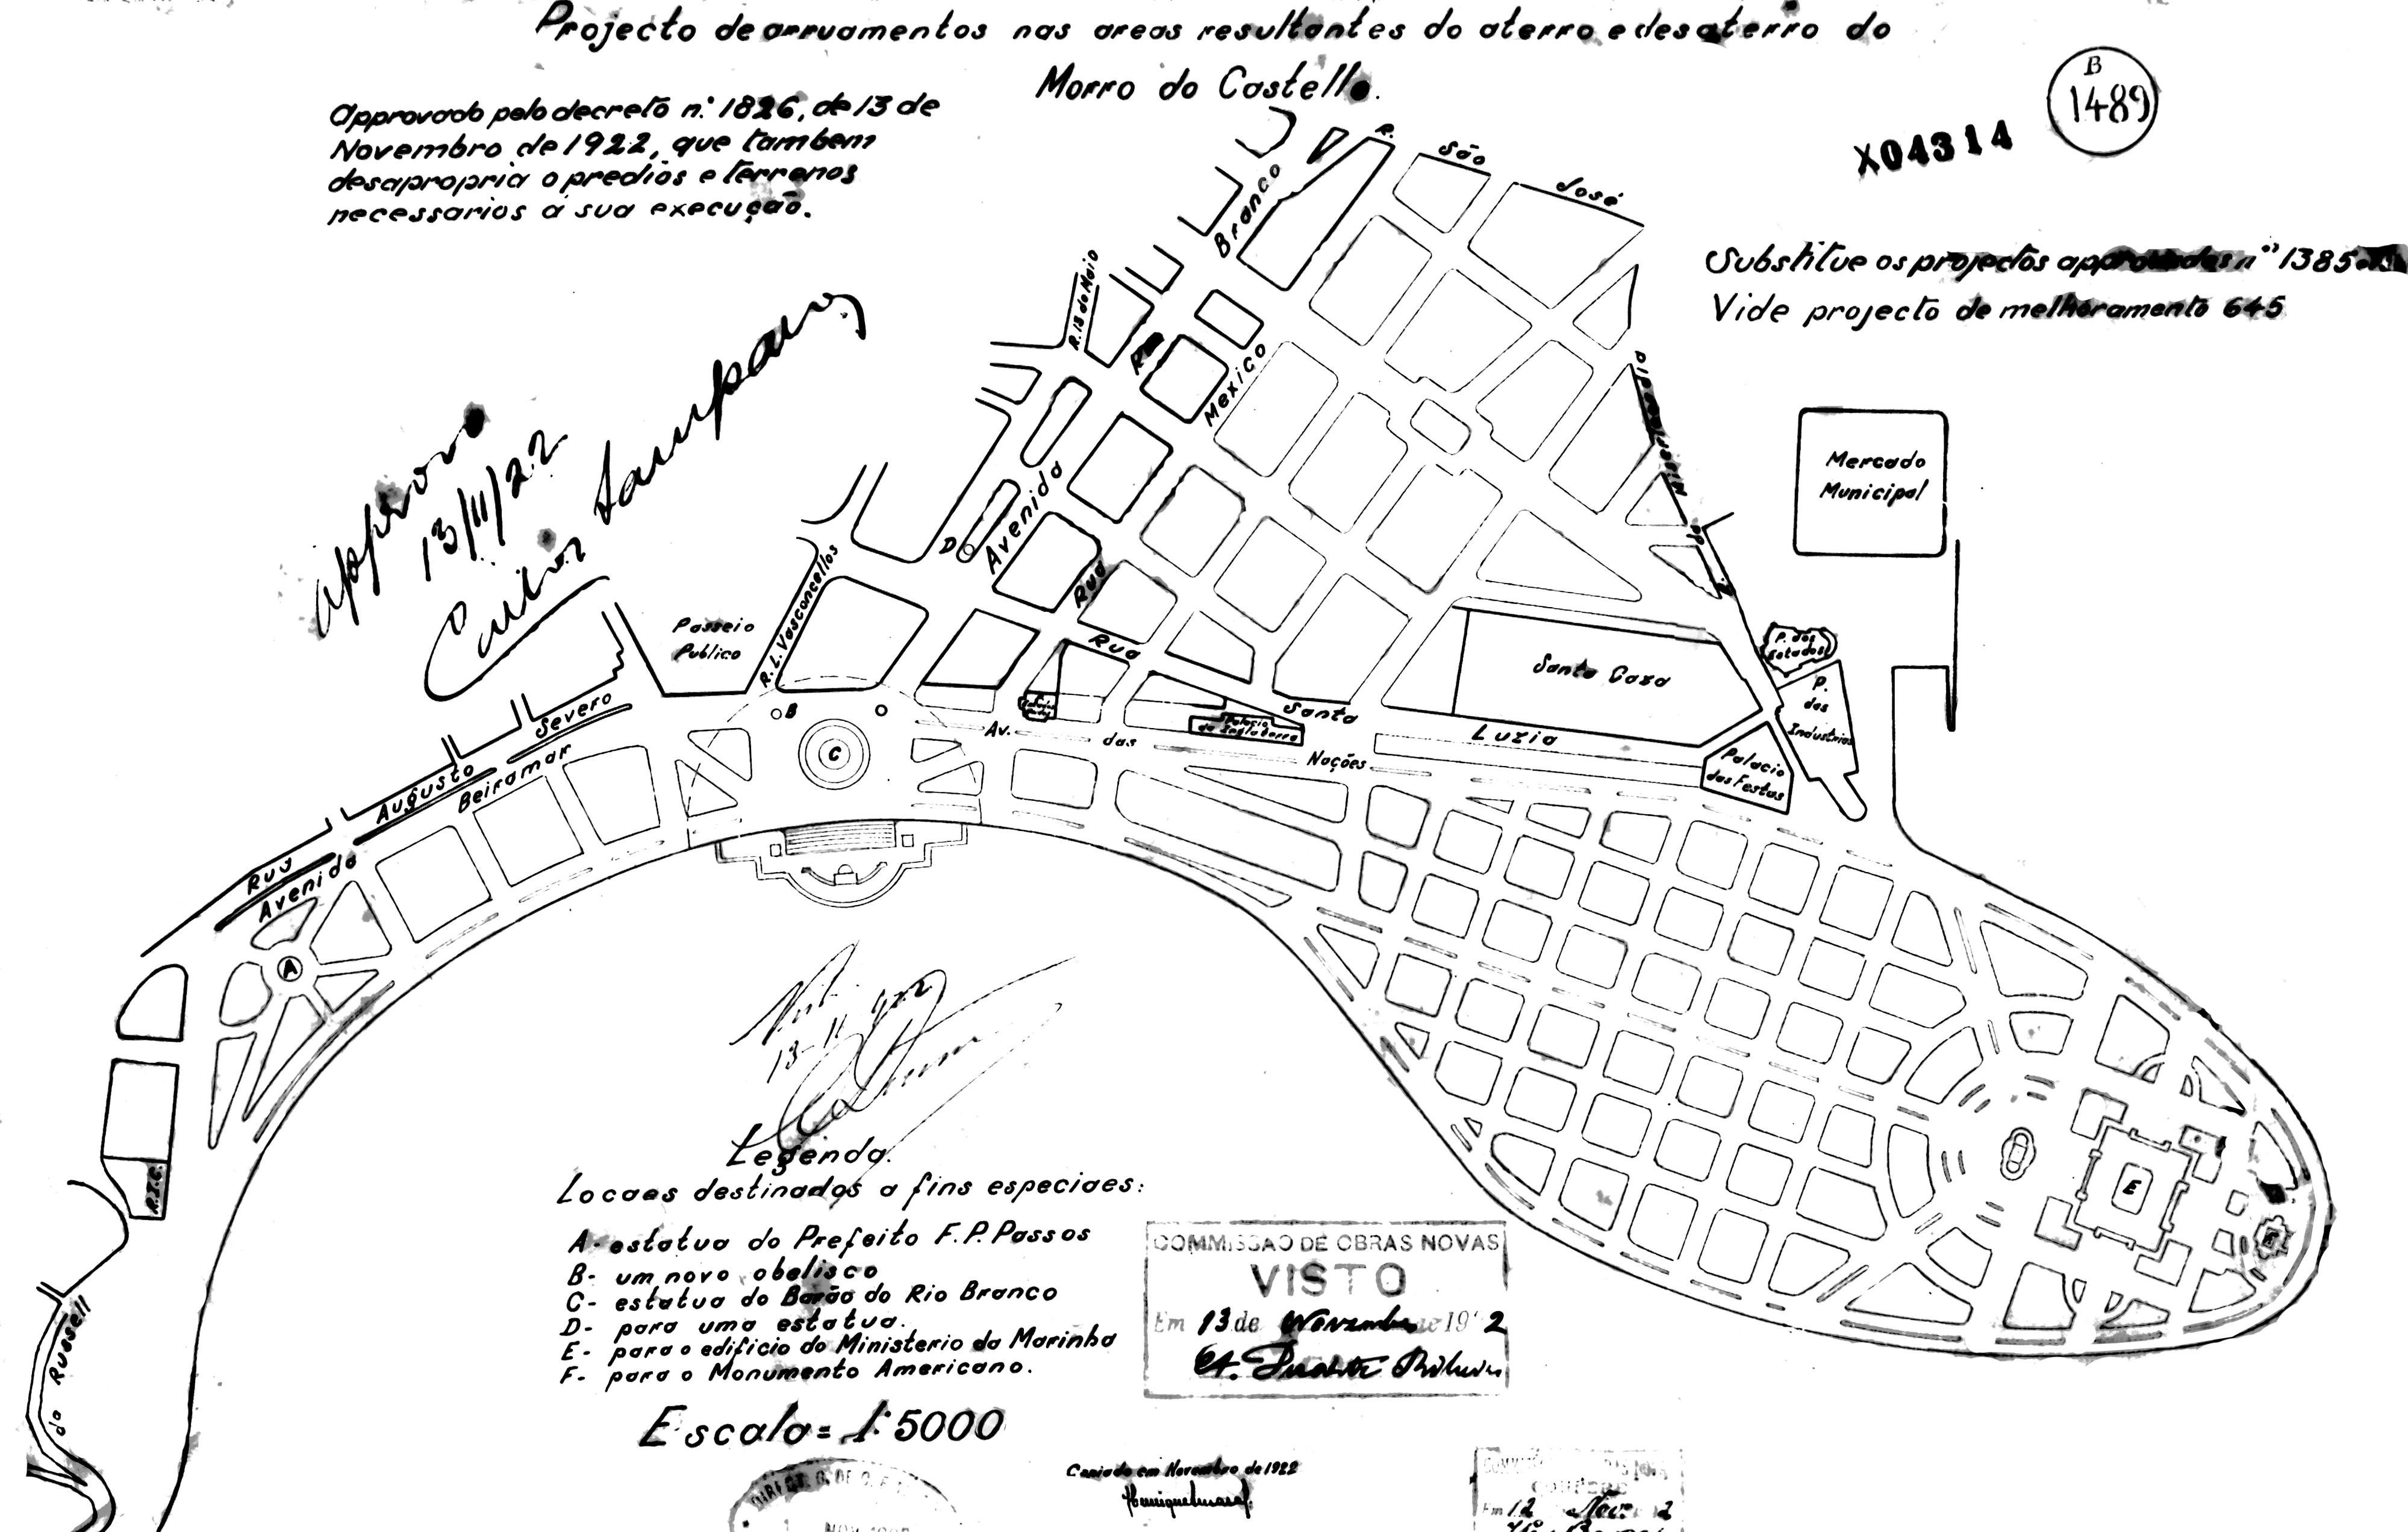 Projecto de arruamentos nas areas resultantes do aterro e desaterro do
Morro do Castello.
Approvado pelo decreto n.º 1826, de 13 de
Novembro de 1922, que tambem
desapropria o predios e terrenos
necessarios á sua execução.
B
1489
X04314
Substitue os projectos approvados nºˢ 1385
Vide projecto de melhoramento 645
Approvo
13/11/22
Carlos Sampaio
R. São José
Branco
R. 13 de Maio
Mexico
Avenida
Rua
D
R. L. Vasconcellos
Passeio
Publico
Mercado
Municipal
P. dos
Estados
P.
das
Industrias
Palacio
das Festas
Santa Casa
Rua Santa Luzia
Palacio
da Inglaterra
Av. das Nações
B
C
Rua Augusto Severo
Avenida Beiramar
A
E
do Russell
Visto
13-11-922
Legenda.
Locaes destinados a fins especiaes:
A- estatua do Prefeito F. P. Passos
B- um novo obelisco
C- estatua do Barão do Rio Branco
D- para uma estatua.
E- para o edificio do Ministerio da Marinha
F- para o Monumento Americano.
Escala= 1:5000
COMMISSAO DE OBRAS NOVAS
VISTO
Em 13 de Novembro de 19 2
Copiado em Novembro de 1922
Em 12 Nov. 2